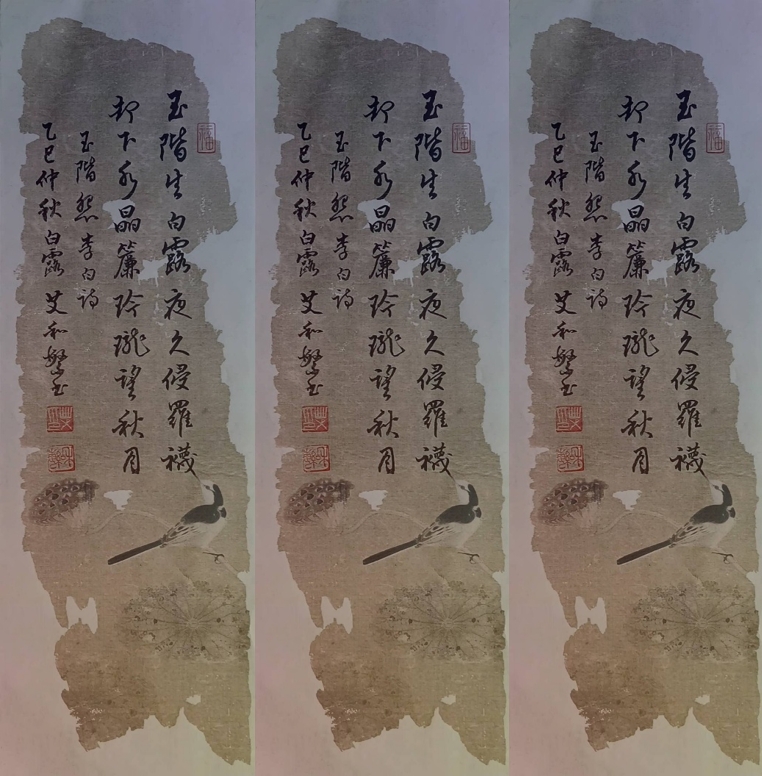 玉階生白露夜久侵羅襪
却下水晶簾玲瓏望秋月
玉階怨李白詩
乙巳仲秋白露艾和繁玉
玉階生白露夜久侵羅襪
却下水晶簾玲瓏望秋月
玉階怨李白詩
乙巳仲秋白露艾和繁玉
玉階生白露夜久侵羅襪
却下水晶簾玲瓏望秋月
玉階怨李白詩
乙巳仲秋白露艾和繁玉